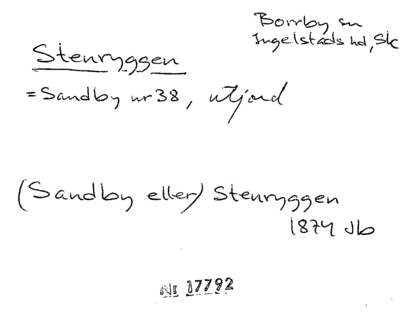 Borrby sn
Ingelstads hd, Sk
Stenryggen
= Sandby nr 38, utjord
(Sandby eller) Stenryggen
1874 Jb
Nr 17792